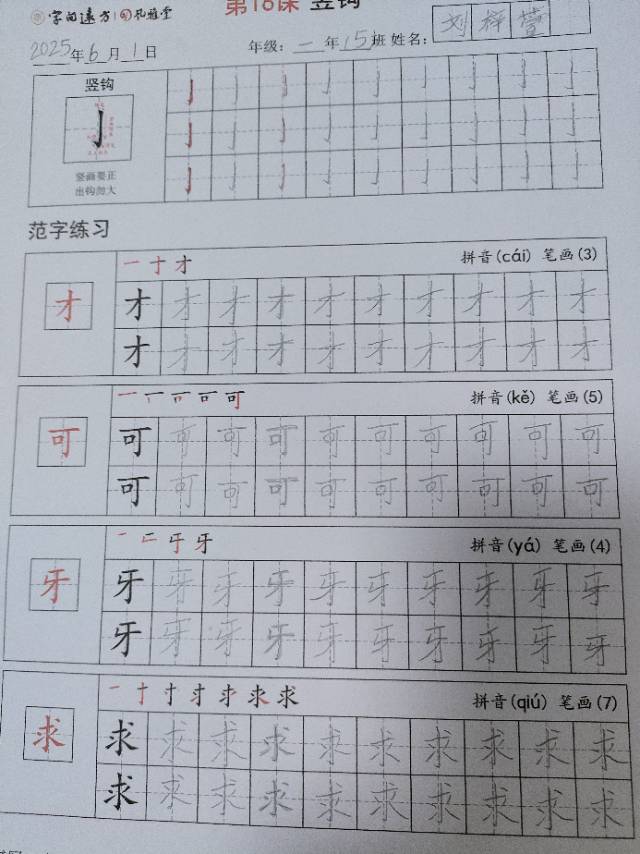 字由远方 孔雅堂
第16课 竖钩
2025年6月1日 年级:一年15班 姓名:刘梓萱
竖钩
亅 亅 亅 亅 亅 亅 亅 亅 亅
亅 亅 亅 亅 亅 亅 亅 亅 亅
亅 亅 亅 亅 亅 亅 亅 亅 亅
竖画要正
出钩勿大
范字练习
拼音(cái) 笔画(3)
才
才 才 才 才 才 才 才 才 才 才
才 才 才 才 才 才 才 才 才 才
拼音(kě) 笔画(5)
可
可 可 可 可 可 可 可 可 可 可
可 可 可 可 可 可 可 可 可 可
拼音(yá) 笔画(4)
牙
牙 牙 牙 牙 牙 牙 牙 牙 牙 牙
牙 牙 牙 牙 牙 牙 牙 牙 牙 牙
拼音(qiú) 笔画(7)
求
求 求 求 求 求 求 求 求 求 求
求 求 求 求 求 求 求 求 求 求